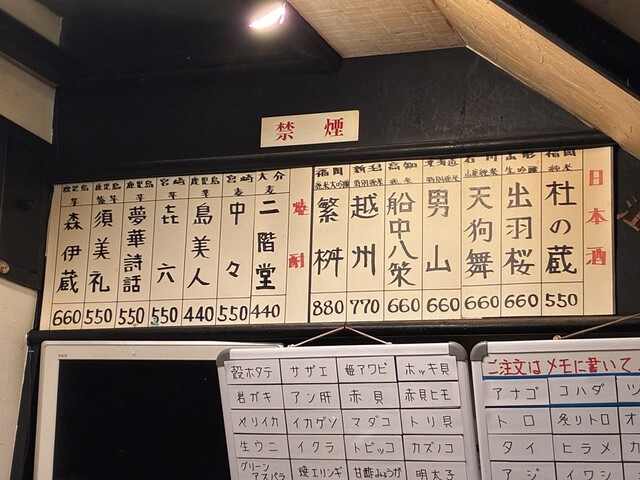 禁煙
日本酒
福岡
杜の蔵
550
山形
生吟醸
出羽桜
660
石川
山廃純米
天狗舞
660
北海道
特別純米
男山
660
高知
純米
船中八策
660
新潟
特別純米
越州
770
福岡
純米大吟醸
繁桝
880
焼酎
大分
麦
二階堂
440
宮崎
麦
中々
550
鹿児島
芋
島美人
440
宮崎
芋
㐂六
550
鹿児島
芋
夢華詩話
550
鹿児島
紫芋
須美礼
550
鹿児島
芋
森伊蔵
660
殻ホタテ サザエ 姫アワビ ホッキ貝
岩ガキ アン肝 赤貝 赤貝ヒモ
ヤリイカ イカゲソ マダコ トリ貝
生ウニ イクラ トビッコ カズノコ
グリーンアスパラ 焼エリンギ 甘酢みょうが 明太子
ご注文はメモに書いて
アナゴ コハダ ツ
トロ 炙りトロ オ
タイ ヒラメ カ
アジ イワシ